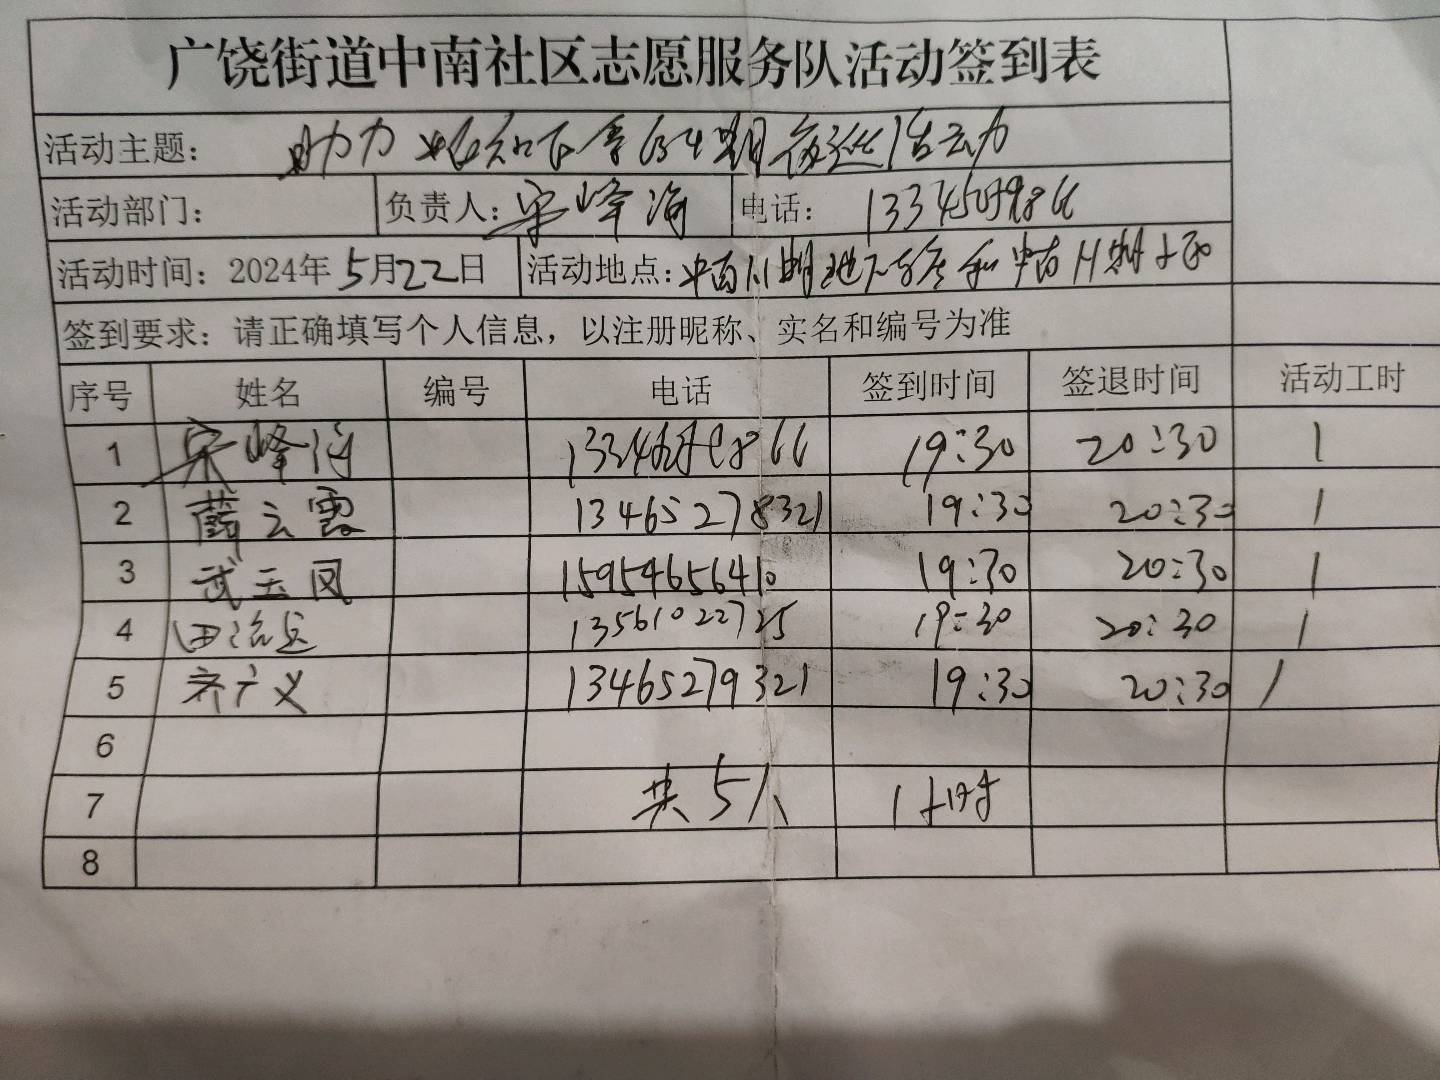 广饶街道中南社区志愿服务队活动签到表
活动主题: 助力 夜巡活动
活动部门: 负责人: 宋峰海 电话:
活动时间: 2024年5月22日 活动地点: 中南
签到要求: 请正确填写个人信息, 以注册昵称、实名和编号为准
序号 姓名 编号 电话 签到时间 签退时间 活动工时
1 宋峰海 19:30 20:30 1
2 薛云霞 13465278321 19:30 20:30 1
3 武玉凤 15954656410 19:30 20:30 1
4 田 13561022725 19:30 20:30 1
5 齐广义 13465279321 19:30 20:30 1
6
7 共5人 1小时
8